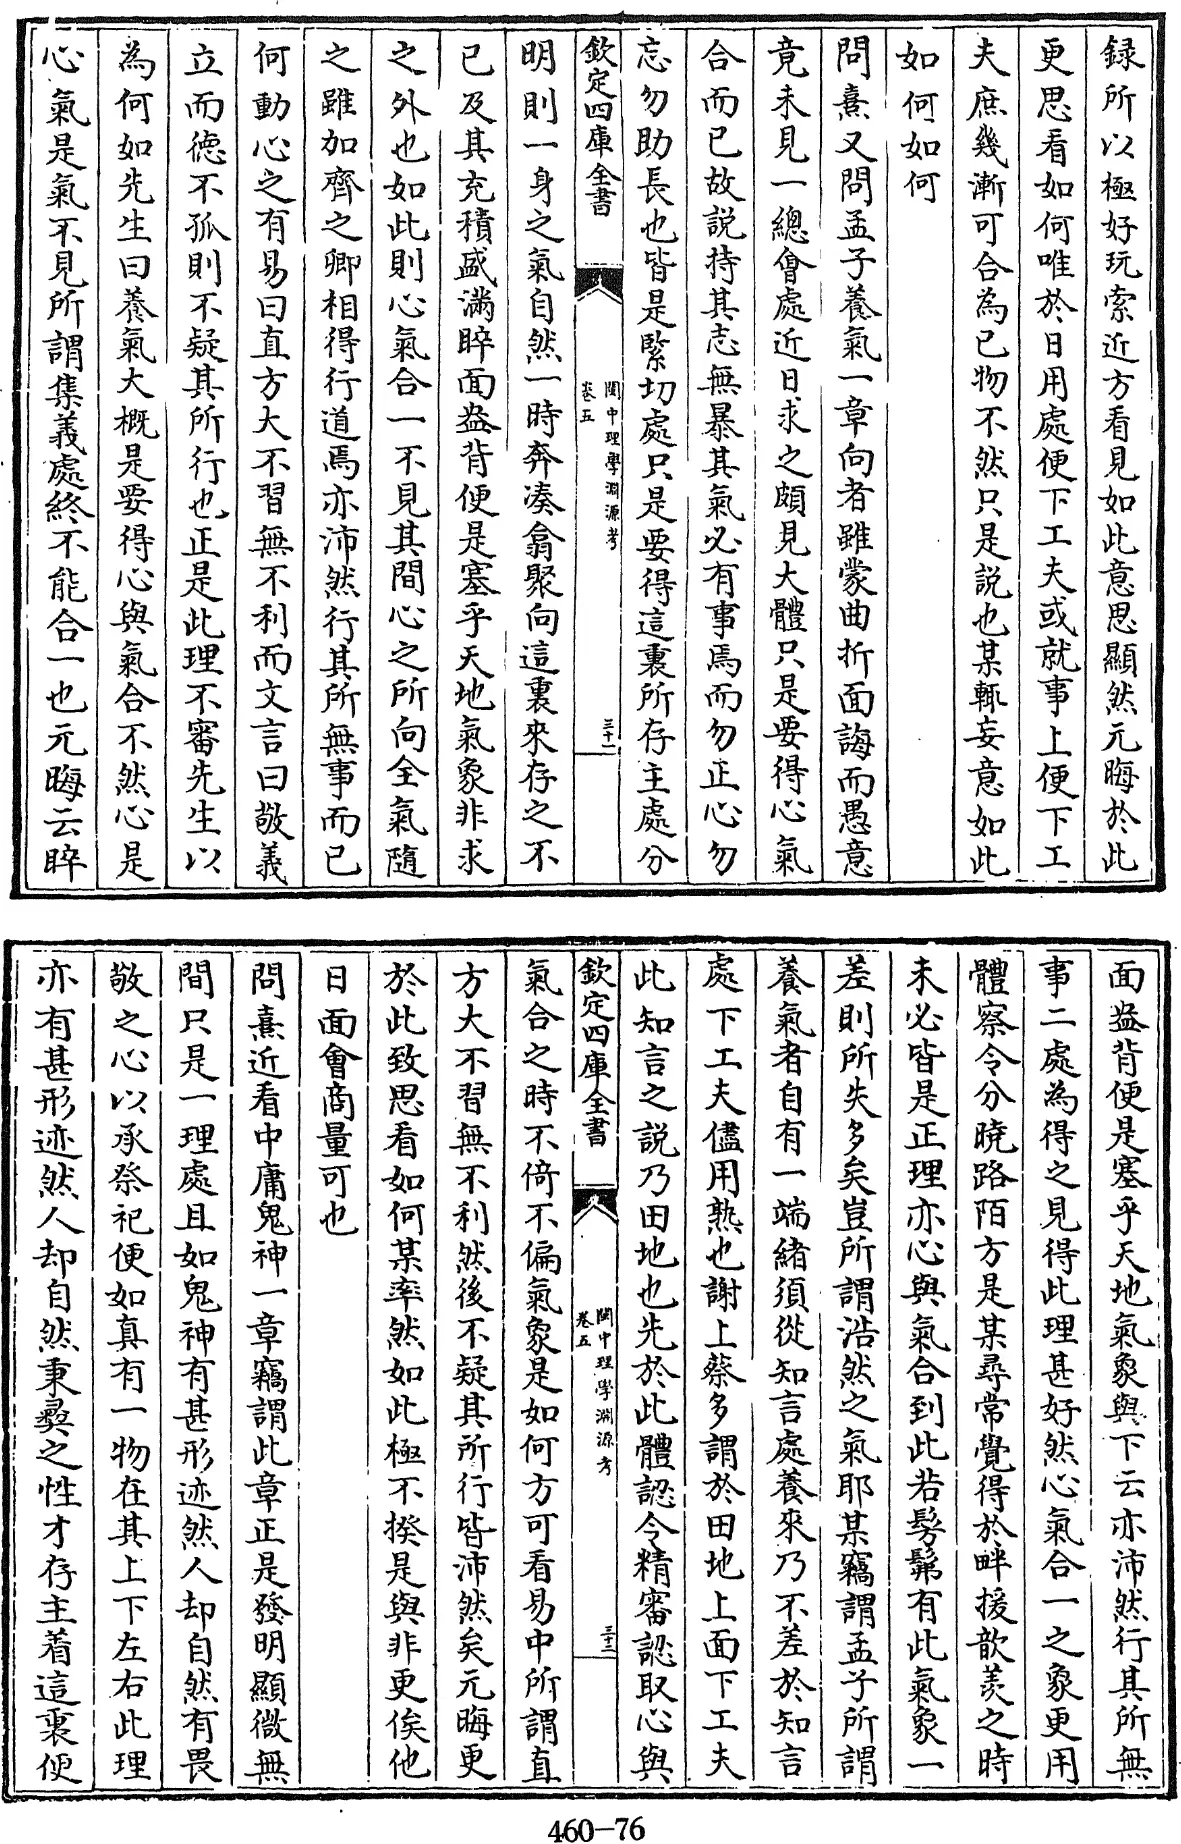 録所以極好玩索近方看見如此意思顯然元晦於此
更思看如何唯於日用處便下工夫或就事上便下工
夫庶幾漸可合為已物不然只是説也某輒妄意如此
如何如何
問熹又問孟子養氣一章向者雖蒙曲折面誨而愚意
竟未見一總㑹處近日求之頗見大體只是要得心氣
合而已故説持其志無暴其氣必有事焉而勿正心勿
忘勿助長也皆是緊切處只是要得這裏所存主處分
欽定四庫全書
閩中理學淵源考
卷五
三十一
明則一身之氣自然一時奔湊翕聚向這裏來存之不
已及其充積盛滿睟面盎背便是塞乎天地氣象非求
之外也如此則心氣合一不見其間心之所向全氣隨
之雖加齊之卿相得行道焉亦沛然行其所無事而已
何動心之有易曰直方大不習無不利而文言曰敬義
立而徳不孤則不疑其所行也正是此理不審先生以
為何如先生曰養氣大概是要得心與氣合不然心是
心氣是氣不見所謂集義處終不能合一也元晦云睟
面盎背便是塞乎天地氣象與下云亦沛然行其所無
事二處為得之見得此理甚好然心氣合一之象更用
體察令分曉路陌方是某尋常覺得於畔援歆羨之時
未必皆是正理亦心與氣合到此若髣髴有此氣象一
差則所失多矣豈所謂浩然之氣耶某竊謂孟子所謂
養氣者自有一端緒須從知言處養來乃不差於知言
處下工夫儘用熟也謝上蔡多謂於田地上面下工夫
此知言之説乃田地也先於此體認令精審認取心與
欽定四庫全書
閩中理學淵源考
卷五
三十二
氣合之時不倚不偏氣象是如何方可看易中所謂直
方大不習無不利然後不疑其所行皆沛然矣元晦更
於此致思看如何某率然如此極不揆是與非更俟他
日面㑹商量可也
問熹近看中庸鬼神一章竊謂此章正是發明顯微無
間只是一理處且如鬼神有甚形迹然人却自然有畏
敬之心以承祭祀便如真有一物在其上下左右此理
亦有甚形迹然人却自然秉彜之性才存主着這裏便
460-76